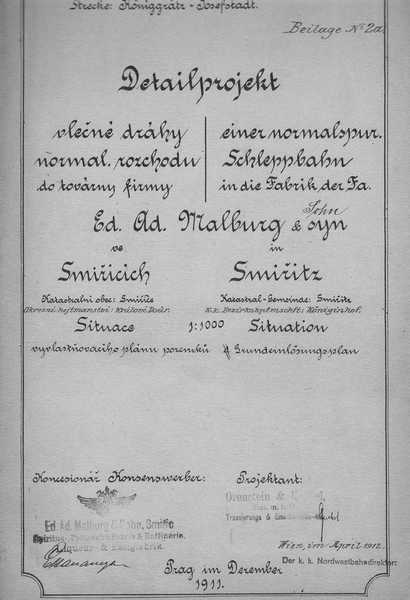 Strecke: Königgrätz - Josefstadt.
Beilage No 2a.
Detailprojekt
vlečné dráhy
normal. rozchodu
do továrny firmy
einer normalspur.
Schleppbahn
in die Fabrik der Fa.
Ed. Ad. Malburg & syn
Sohn
ve
Smiřicích
in
Smiřitz
Katastralní obec: Smiřice
Okresní hejtmanství: Králové Dvůr.
Katastral-Gemeinde: Smiřitz
K.k. Bezirkshptmschft: Königinhof.
Situace 1:1000 Situation
vyvlastňovacího plánu pozemků
Grundeinlösungsplan
Koncesionář Konsenswerber:
Projektant:
Ed. Ad. Malburg & Sohn, Smiřic
Spiritus- & Raffinerie,
Liqueur- & Essigfabrik.
Orenstein &
Wien, im April 1912.
Der k. k. Nordwestbahndirektor:
Prag im Dezember
1911.